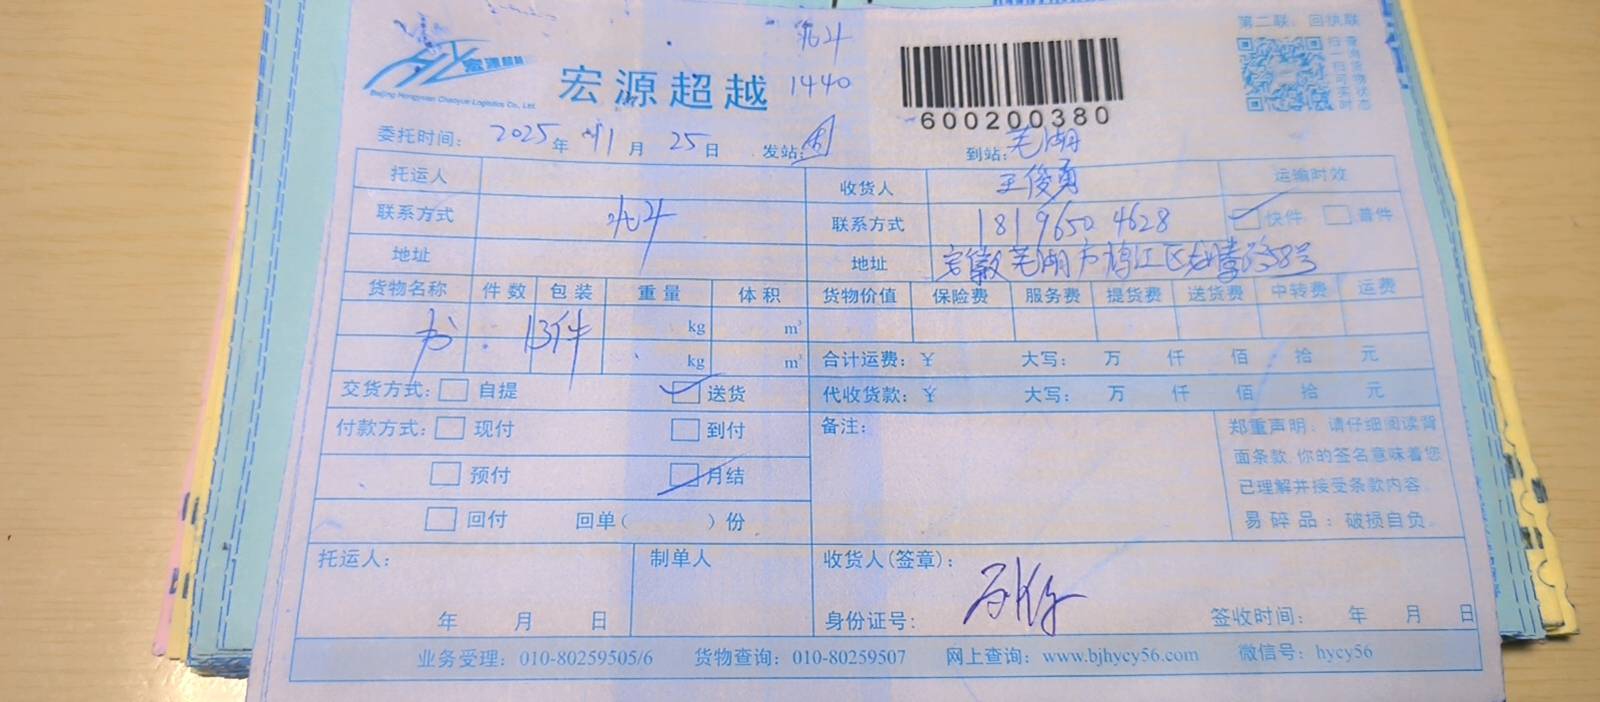 第二联：回执联
扫一扫可实时
查询货物状态
兆斗
宏源超越
Beijing Hongyuan Chaoyue Logistics Co., Ltd.
宏源超越 1440
600200380
委托时间： 2025 年 11 月 25 日 发站： 到站：芜湖
托运人 收货人 王俊勇 运输时效
联系方式 兆斗 联系方式 18196504628 快件 普件
地址 地址 安徽芜湖市鸠江区龙腾路58号
货物名称 件数 包装 重量 体积 货物价值 保险费 服务费 提货费 送货费 中转费 运费
书 13件 kg m³
kg m³ 合计运费：￥ 大写： 万 仟 佰 拾 元
交货方式： 自提 送货 代收货款：￥ 大写： 万 仟 佰 拾 元
付款方式： 现付 到付 备注：
预付 月结
回付 回单（ ）份
郑重声明：请仔细阅读背
面条款，你的签名意味着您
已理解并接受条款内容。
易碎品：破损自负。
托运人： 制单人 收货人(签章)：
年 月 日 身份证号： 签收时间： 年 月 日
业务受理：010-80259505/6 货物查询：010-80259507 网上查询：www.bjhycy56.com 微信号：hycy56